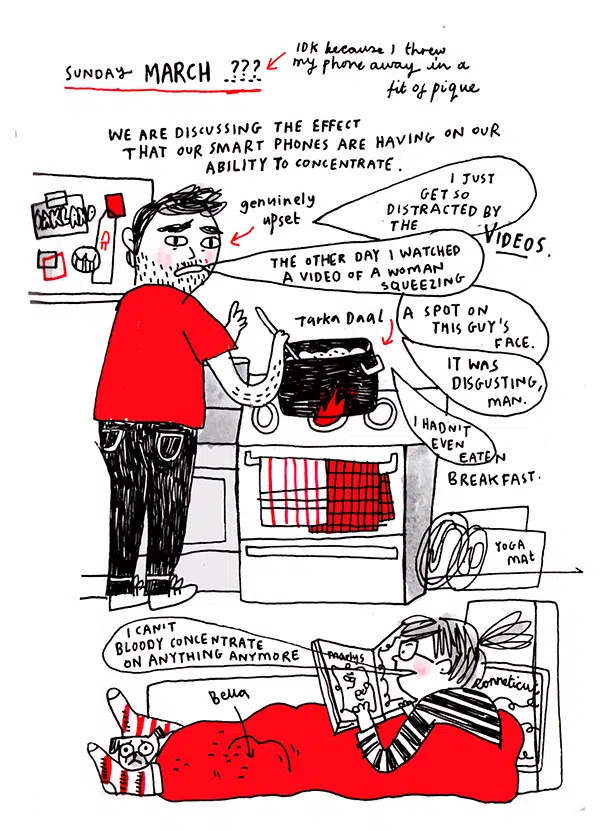 SUNDAY MARCH ???
IDK because I threw
my phone away in a
fit of pique
WE ARE DISCUSSING THE EFFECT
THAT OUR SMART PHONES ARE HAVING ON OUR
ABILITY TO CONCENTRATE.
OAKLAND
genuinely
upset
I JUST
GET SO
DISTRACTED BY
THE
VIDEOS.
THE OTHER DAY I WATCHED
A VIDEO OF A WOMAN
SQUEEZING
Tarka Daal
A SPOT ON
THIS GUY'S
FACE.
IT WAS
DISGUSTING,
MAN.
I HADN'T
EVEN
EATEN
BREAKFAST.
YOGA
Mat
I CAN'T
BLOODY CONCENTRATE
ON ANYTHING ANYMORE
marlys
Bella
Connecticu